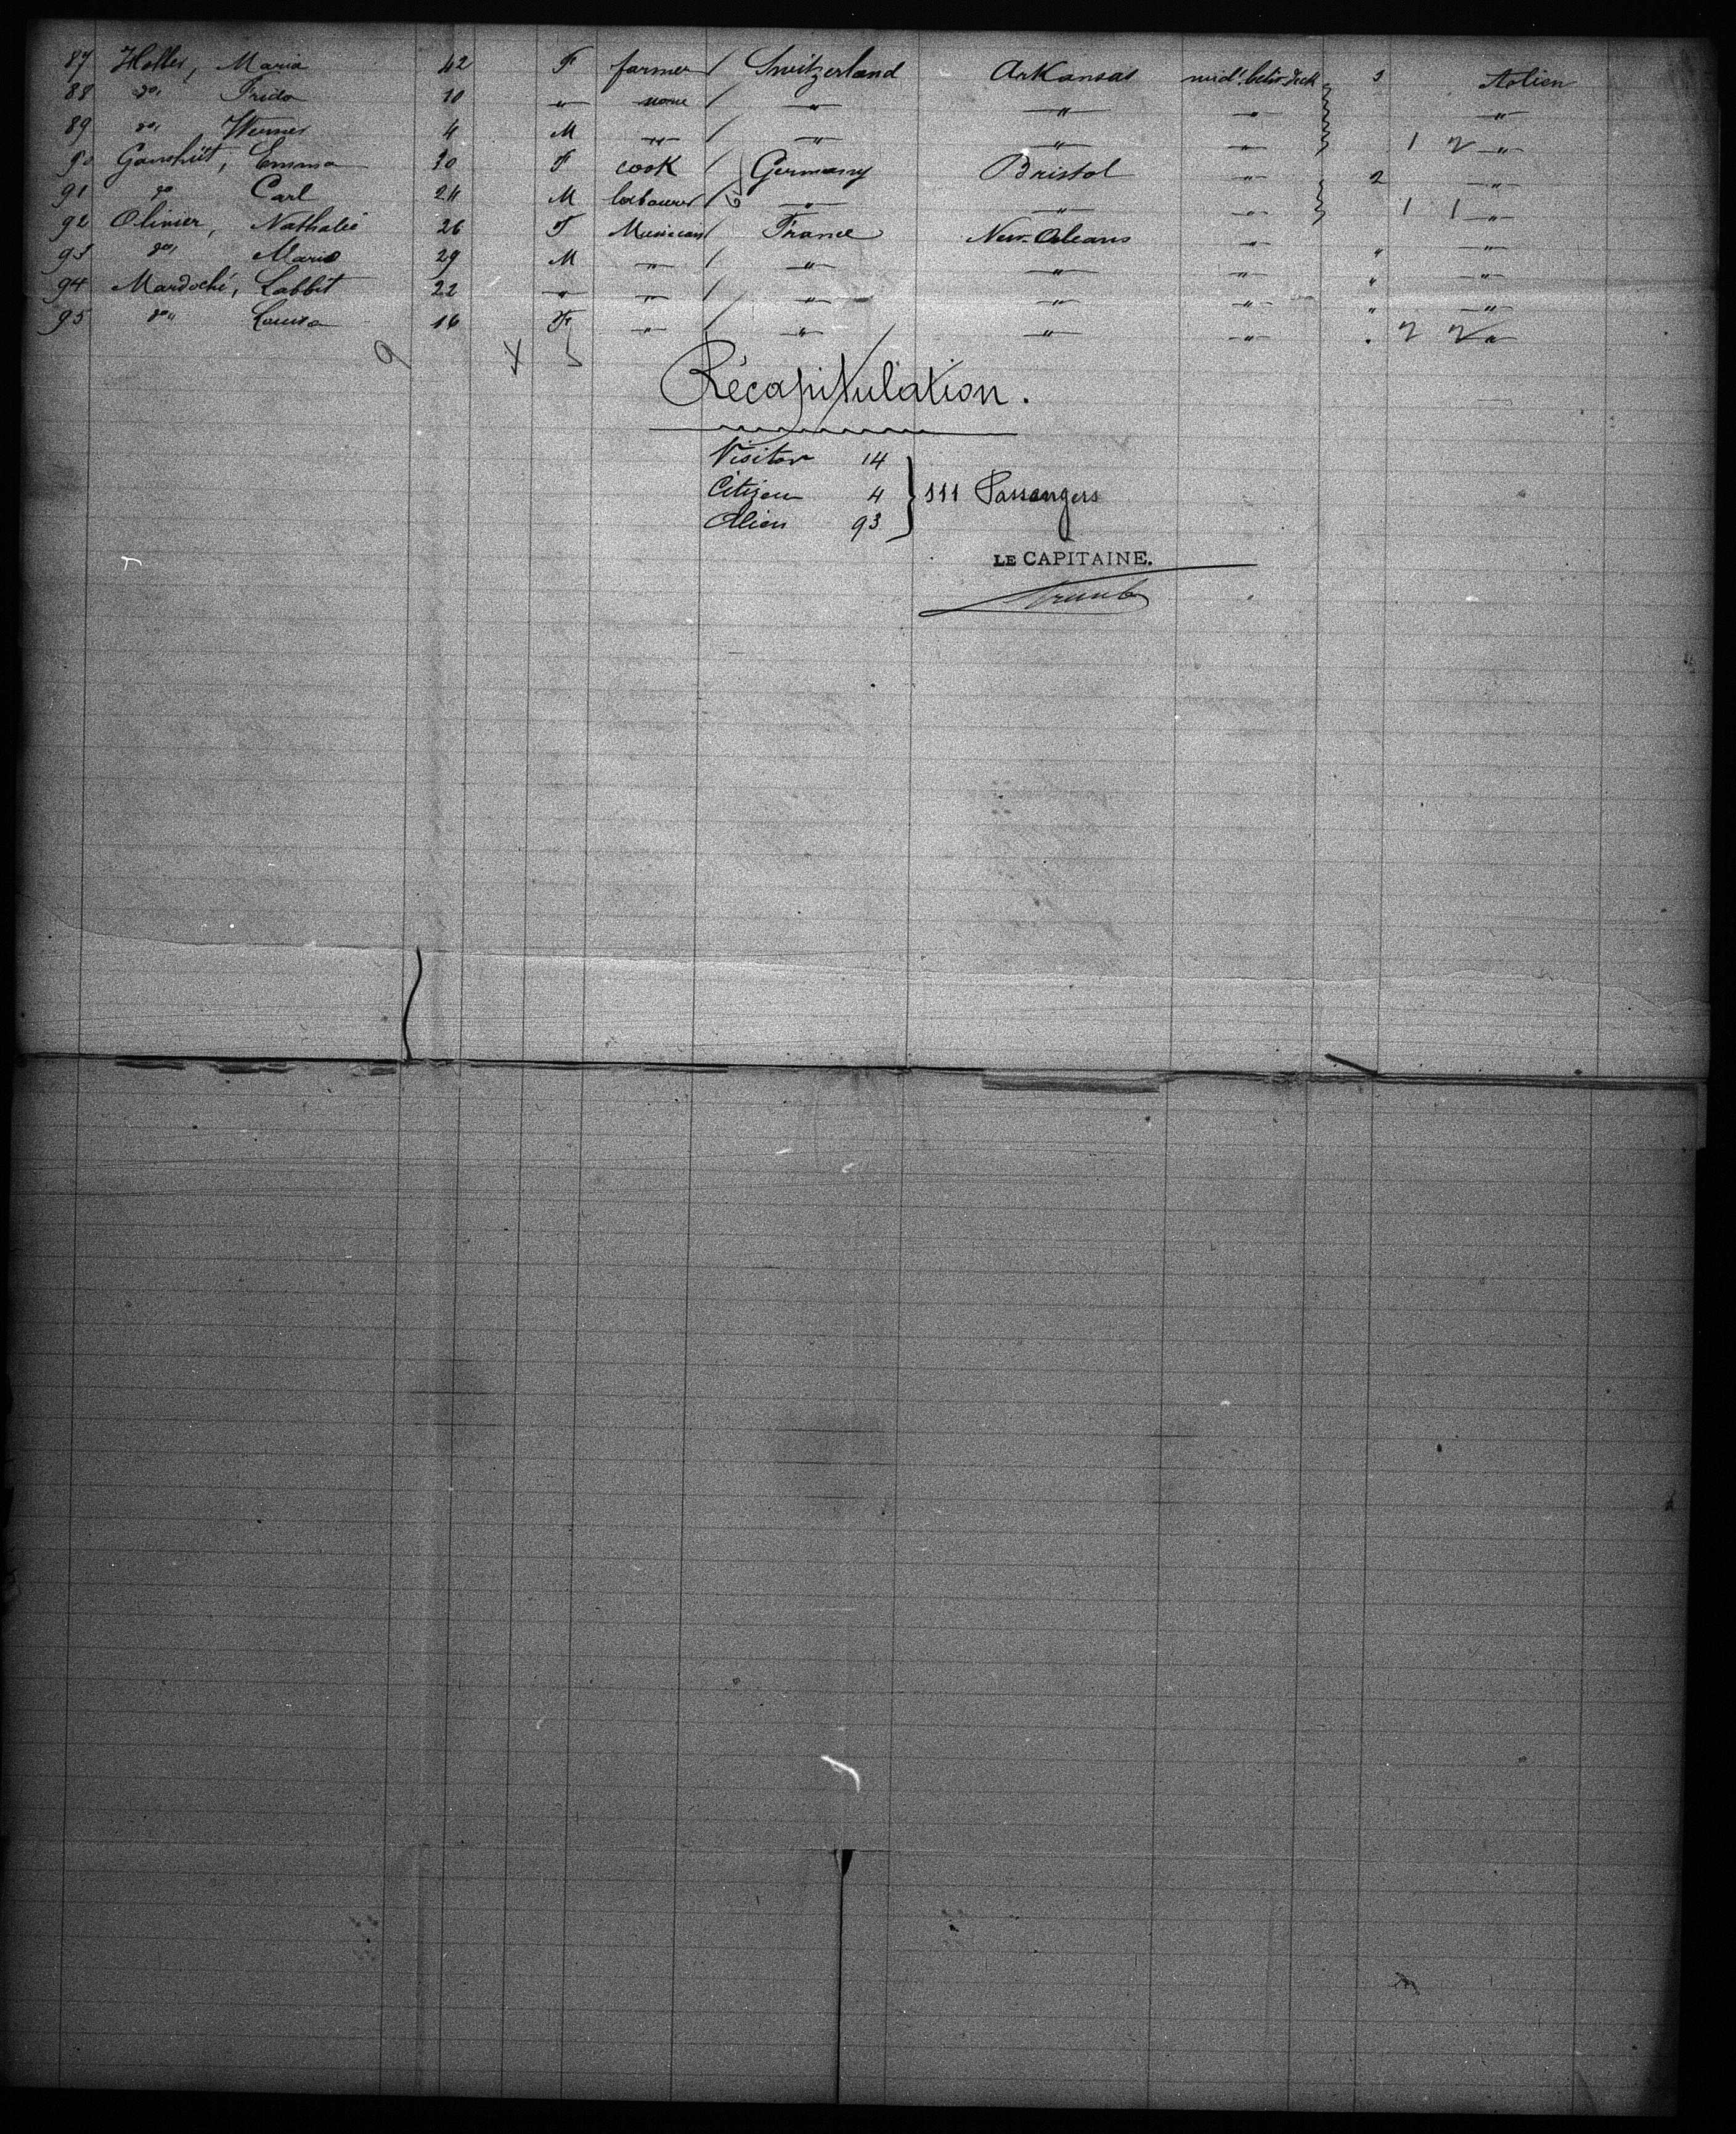 87 Haller, Maria 42 F farmer / Switzerland Arkansas mid! betw. deck 1 Alien
88 do, Frida 10 " none / " " " "
89 do, Werner 4 M " / " " " 1 2 "
90 Emma F cook / Germany Bristol " 2 "
91 do Carl 24 M labourer / " " " 1 1 "
92 Olivier, Nathalie 26 F Musician / France New-Orleans " " "
93 do, Mario 29 M " / " " " " "
94 Mardoché, Labbit 22 " " / " " " " "
95 do, Louisa 16 F " / " " " " 2 2 "
9 4 5
Récapitulation.
Visitor 14
Citizen 4 } 111 Passengers
Alien 93
LE CAPITAINE.